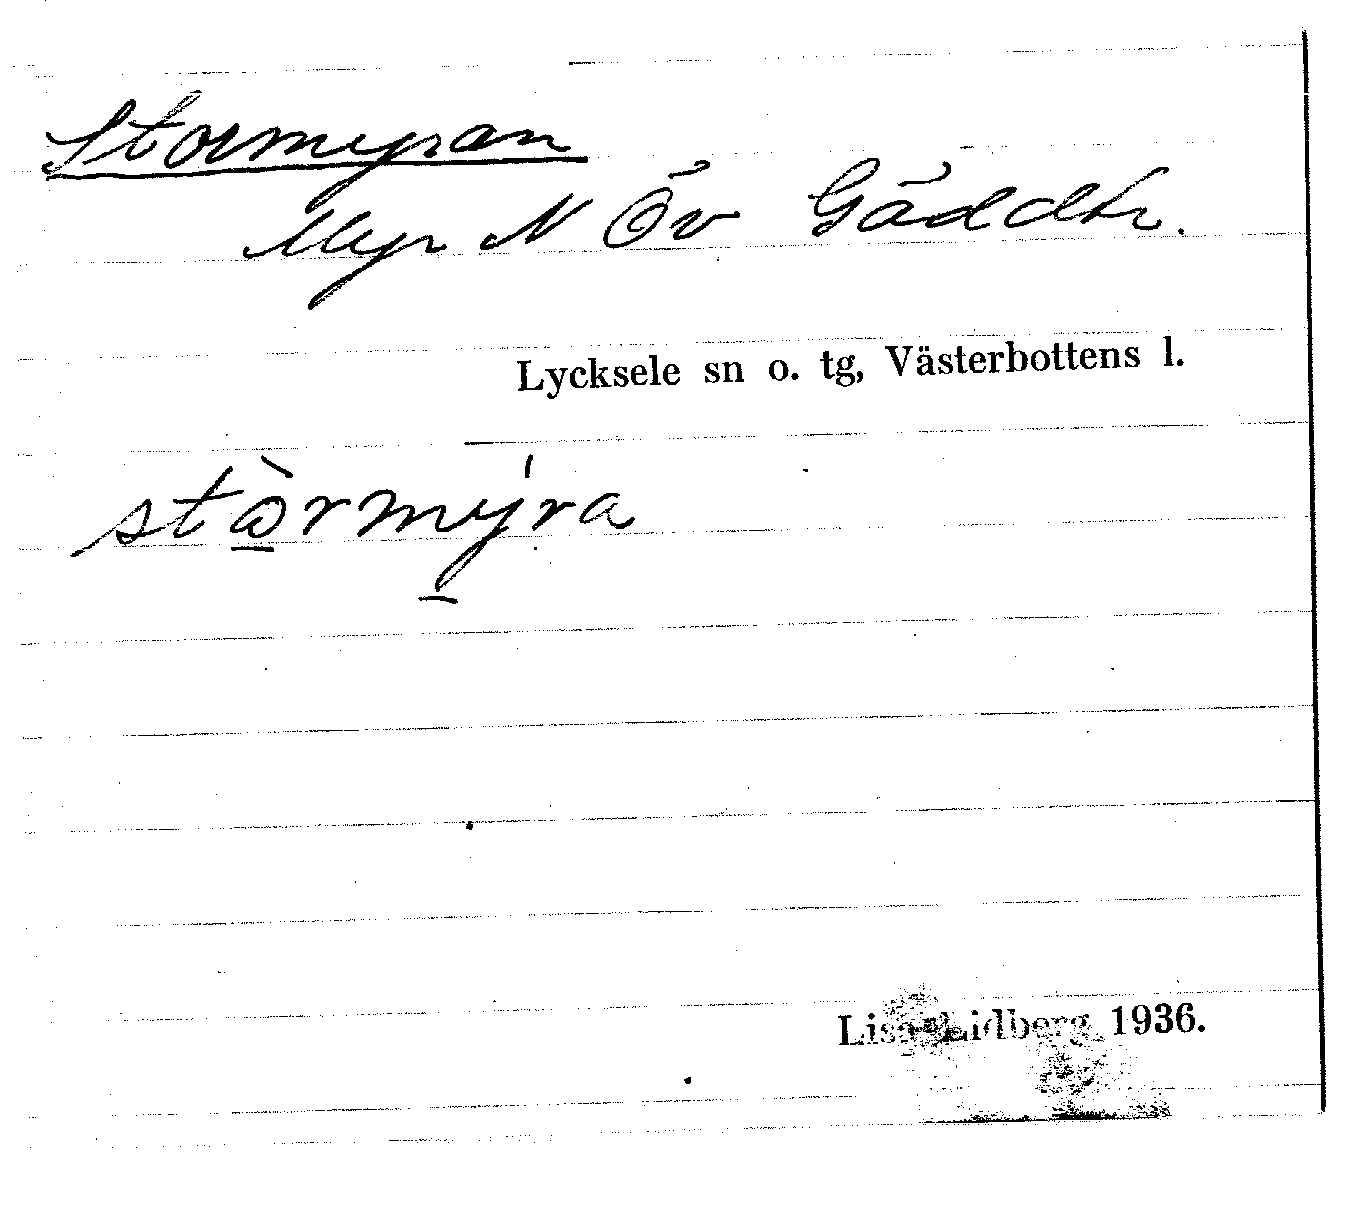 Stormyran
Myr N Öv Gäddtr.
Lycksele sn o. tg, Västerbottens l.
stòrmý̱ra
Lisa Lidberg 1936.